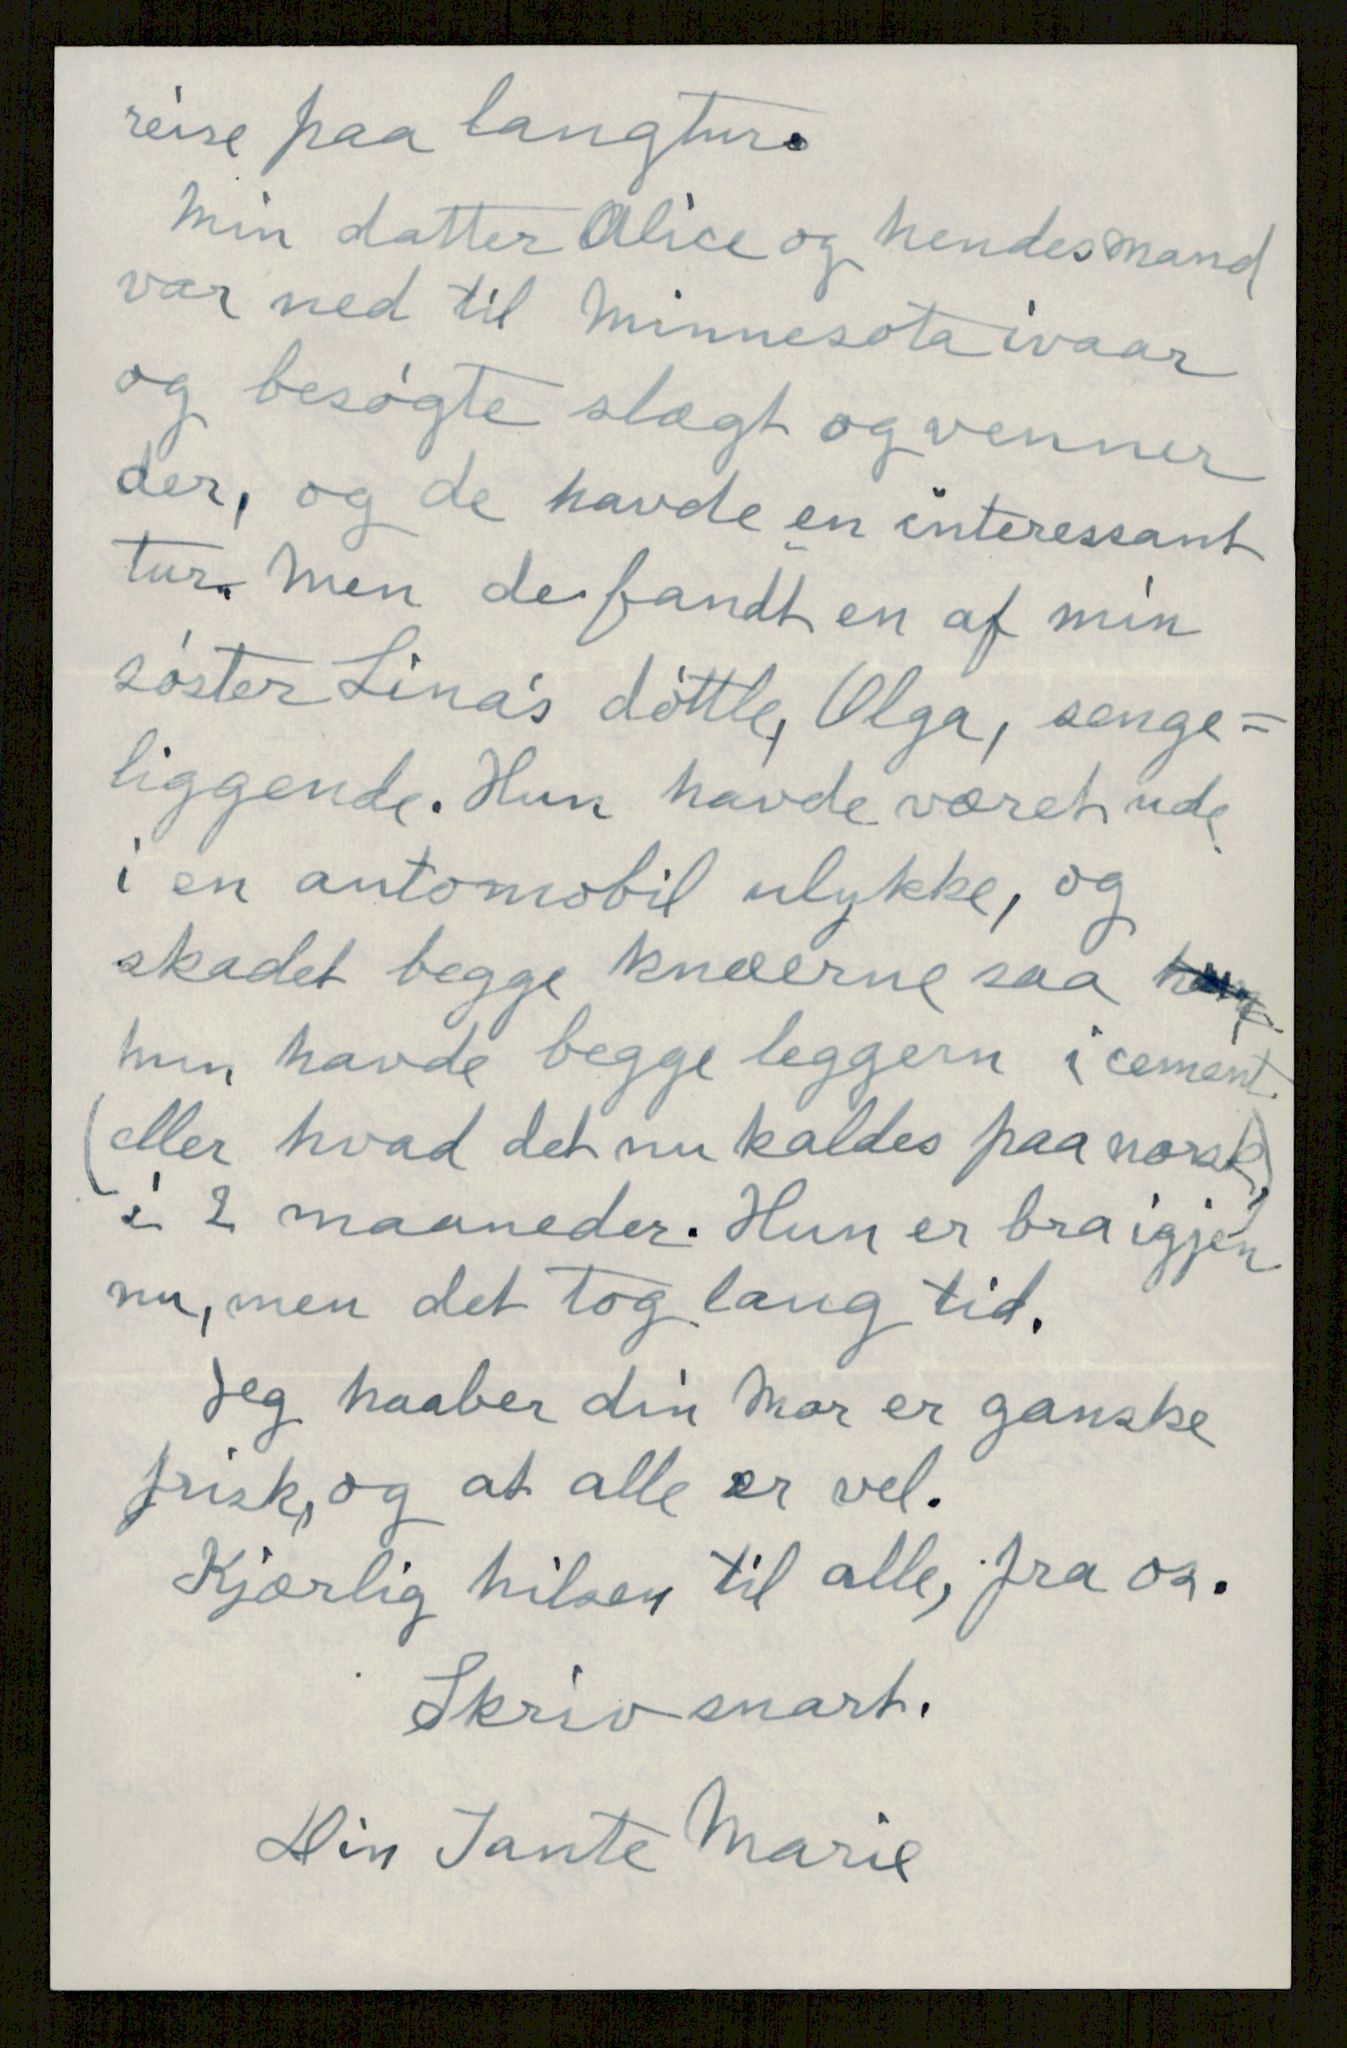 reise paa langtur.
Min datter Alice og hendes mand
var ned til Minnesota ivaar
og besøgte slægt og venner
der, og de havde en interessant
tur. Men de fandt en af min
søster Lina's døttle, Olga, senge=
liggende. Hun havde været ude
i en automobil ulykke, og
skadet begge knæerne saa
hun havde begge leggern i cement.
(eller hvad det nu kaldes paa norsk)
i 2 maaneder. Hun er bra igjen
nu, men det tog lang tid.
Jeg haaber din Mor er ganske
frisk, og at alle er vel.
Kjærlig hilsen til alle, fra os.
Skriv snart.
Din Tante Marie